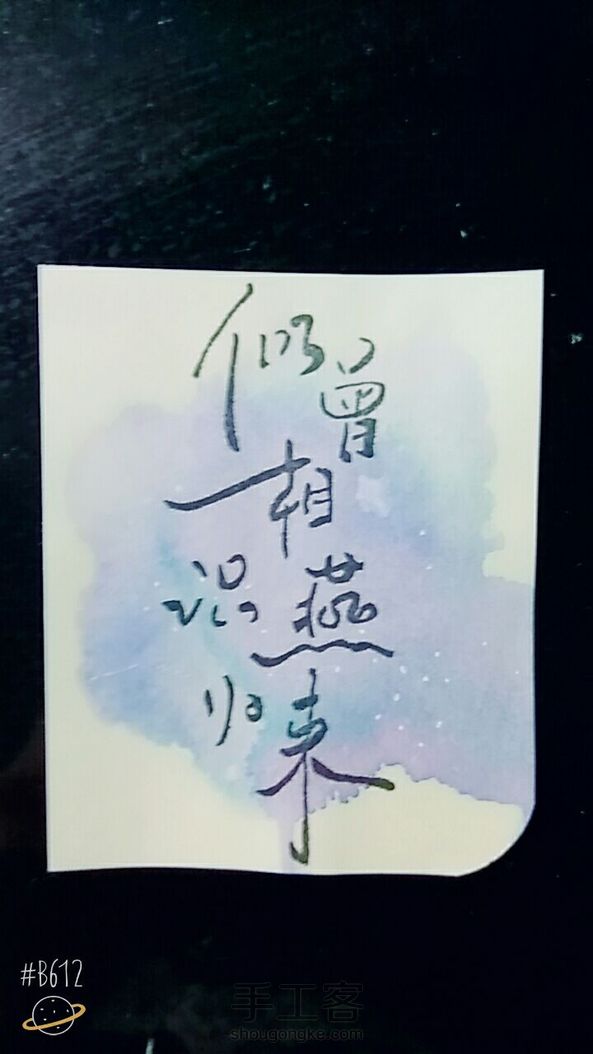 似曾
相
识燕
归来
#B612
手工客
shougongke.com